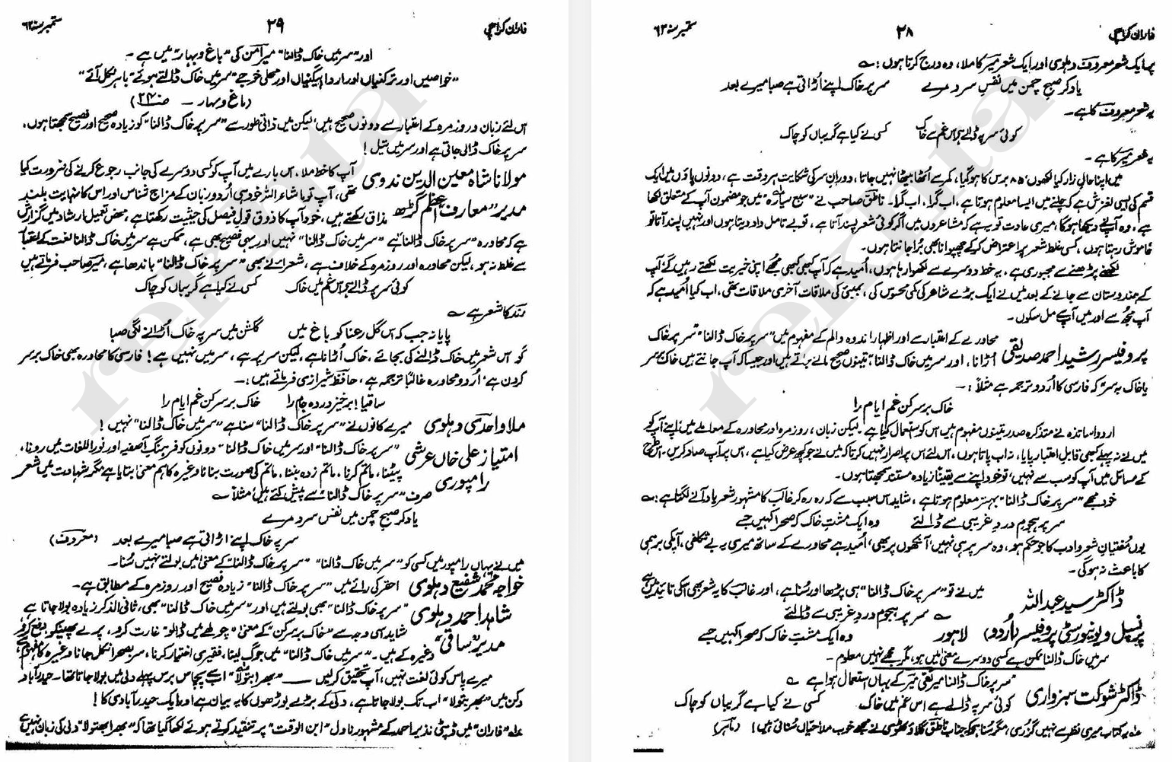 فاران کراچی ۲۸ ستمبر سنہ ۶۲
پر ایک شعر معروف دہلوی اور ایک شعر میر کا ملا، وہ درج کرتا ہوں:۔
یاد کر صبح چمن میں نفس سرد مرے سر پر خاک اپنے اڑاتی ہے صبا میرے بعد
یہ شعر معروف کا ہے۔
کوئی سر پہ ڈالے ہے اس غم سے خاک کسی نے کیا ہے گریباں کو چاک
یہ شعر میر کا ہے۔
میں اپنا حالِ زار کیا لکھوں، ۸۵ برس کا ہو گیا، کمر سے اٹھا بیٹھا نہیں جاتا، دورانِ سر کی شکایت ہر وقت ہے، دونوں پاؤں میں ایک
قسم کی ایسی لغزش ہے کہ چلنے میں ایسا معلوم ہوتا ہے، اب گرا، اب گرا۔ ناطق صاحب نے "سبع سیارہ" میں جو مضمون آپ کے متعلق لکھا
ہے، وہ آپ نے دیکھا ہوگا، میری عادت تو یہ ہے کہ مشاعروں میں اگر کوئی شعر پسند آتا ہے، تو بے تامل داد دیتا ہوں اور نہیں پسند آتا تو
خاموش رہتا ہوں، کسی غلط شعر پر اعتراض کر کے چھپوانا بھی برا جانتا ہوں۔
لکھنے پڑھنے سے مجبوری ہے، یہ خط دوسرے سے لکھوا رہا ہوں، امید ہے کہ آپ کبھی کبھی مجھے اپنی خیریت لکھتے رہیں گے آپ
کے ہندوستان سے جانے کے بعد میں نے ایک بڑے شاعر کی کمی محسوس کی، بمبئی کی ملاقات آخری ملاقات تھی، اب کیا امید ہے کہ
آپ مجھ سے اور میں آپ سے مل سکوں۔
پروفیسر رشید احمد صدیقی محاورے کے اعتبار سے اور اظہارِ اندوہ و الم کے مفہوم میں "سر پر خاک ڈالنا" "سر پر خاک
اڑانا، اور سر میں خاک ڈالنا، تینوں صحیح مانے برتے ہیں اور جیسا کہ آپ جانتے ہیں خاک بسر
یا خاک بہ سر کہ فارسی کا اردو ترجمہ ہے مثلاً:۔
خاک بر سر کن غم ایام را
اردو اساتذہ نے متذکرہ صدر تینوں مفہوم میں اس کو استعمال کیا ہے۔ لیکن زبان، روزمرہ اور محاورہ کے معاملے میں، اپنے آپ کو
میں نے نہ پہلے کبھی قابلِ اعتبار پایا، نہ اب پاتا ہوں، اس لئے اس پر اصرار نہیں کرتا کہ میں نے جو کچھ عرض کیا ہے، اس پر آپ صاد کریں۔ اس طرح
کے مسائل میں آپ کو سب سے نہیں، تو خود اپنے سے یقیناً زیادہ مستند سمجھتا ہوں۔
خود مجھے "سر پر خاک ڈالنا" بہتر معلوم ہوتا ہے، شاید اس سبب سے کہ رہ رہ کر غالب کا مشہور شعر یاد آنے لگتا ہے:۔
سر پر ہجومِ دردِ غریبی سے ڈالئے وہ ایک مشتِ خاک کہ صحرا کہیں جسے
یوں مفتیانِ شعر و ادب کا جو حکم ہو، وہ سر پر ہی نہیں آنکھوں پر بھی، امید ہے محاورے کے ساتھ میری یہ بے تکلفی، آپ کی برہمی
کا باعث نہ ہوگی۔
ڈاکٹر سید عبداللہ میں نے تو "سر پر خاک ڈالنا" ہی پڑھا اور سنا ہے، اور غالب کا یہ شعر بھی اس کی تائید میں ہے
سر پر ہجومِ دردِ غریبی سے ڈالئے
پرنسپل و یونیورسٹی پروفیسر (اردو) لاہور وہ ایک مشتِ خاک کہ صحرا کہیں جسے
سر میں خاک ڈالنا ممکن ہے کسی دوسرے معنی میں ہو، مگر مجھے نہیں معلوم۔
ڈاکٹر شوکت سبزواری "سر پر خاک ڈالنا میر تقی میر کے یہاں استعمال ہوا ہے
کوئی سر پہ ڈالے ہے اس غم میں خاک کسی نے کیا ہے گریباں کو چاک
عہ یہ کتاب میری نظر سے نہیں گزری، مگر سنا ہے کہ جناب ناطق گلاوٹھوی نے مجھے خوب صلاحیاں سنائی ہیں! (ماہر)
فاران کراچی ۲۹ ستمبر سنہ ۶۲
اور "سر میں خاک ڈالنا" میر امن کی "باغ و بہار" میں ہے۔
"خواصیں اور ترکنیاں اور اردا بیگنیاں اور محلی خوجے "سر میں خاک ڈالتے ہوئے" باہر نکل آئے"
(باغ و بہار ۔ صـ ۲۴)
اس لئے زبان و روزمرہ کے اعتبار سے دونوں صحیح ہیں لیکن میں ذاتی طور سے "سر پر خاک ڈالنا" کو زیادہ صحیح اور فصیح سمجھتا ہوں،
سر پر خاک ڈالی جاتی ہے اور سر میں تیل!
مولانا شاہ معین الدین ندوی آپ کا خط ملا، اس بارے میں آپ کو کسی دوسرے کی جانب رجوع کرنے کی ضرورت کیا
تھی، آپ تو ماشاء اللہ خود ہی اردو زبان کے مزاج شناس اور اس کا نہایت بلند
مدیر "معارف" اعظم گڑھ مذاق رکھتے ہیں، خود آپ کا ذوق قولِ فیصل کی حیثیت رکھتا ہے، محض تعمیلِ ارشاد میں گزارش
ہے کہ محاورہ "سر پر خاک ڈالنا" ہے "سر میں خاک ڈالنا" نہیں اور یہی فصیح بھی ہے، ممکن ہے سر میں خاک ڈالنا لغت کے اعتبار
سے غلط نہ ہو، لیکن محاورہ اور روزمرہ کے خلاف ہے، شعراء نے بھی "سر پر خاک ڈالنا" باندھا ہے، میر صاحب فرماتے ہیں
کوئی سر پر ڈالے ہے اس غم میں خاک کسی نے کیا ہے گریباں کو چاک
رند کا شعر ہے ۔
پایا نہ جب کہ اس گلِ رعنا کو باغ میں گلشن میں سر پہ خاک اڑانے لگی صبا
گو اس شعر میں خاک ڈالنے کی بجائے، خاک اڑانا ہے، لیکن سر پر ہے، سر میں نہیں ہے! فارسی کا محاورہ بھی خاک بر سر
کردن ہے، اردو محاورہ غالباً ترجمہ ہے، حافظ شیرازی فرماتے ہیں:۔
ساقیا! برخیز در دہ جام را خاک بر سر کن غم ایام را
ملا واحدی دہلوی میرے کانوں نے "سر پر خاک ڈالنا" سنا ہے "سر میں خاک ڈالنا" نہیں!
امتیاز علی خاں عرشی "سر پر خاک ڈالنا" اور سر میں خاک ڈالنا" دونوں کو فرہنگِ آصفیہ اور نور اللغات میں رونا،
رامپوری پیٹنا، ماتم کرنا، ماتم زدہ بننا، ماتم کی صورت بنانا وغیرہ کا ہم معنی بتایا ہے مگر شہادت میں شعر
صرف "سر پر خاک ڈالنا" کے پیش کئے ہیں، مثلاً ۔
یاد کر صبح چمن میں نفس سرد مرے
سر پہ خاک اپنے اڑاتی ہے صبا میرے بعد (معروف)
میں نے یہاں رامپور میں کسی کو "سر میں خاک ڈالنا" "سر پر خاک ڈالنا" کے معنی میں بولتے نہیں سنا۔
خواجہ محمد شفیع دہلوی احقر کی رائے میں "سر پر خاک ڈالنا" زیادہ فصیح اور روزمرہ کے مطابق ہے۔
شاہد احمد دہلوی "سر پر خاک ڈالنا" بھی بولتے ہیں اور "سر میں خاک ڈالنا" بھی، ثانی الذکر زیادہ بولا جاتا ہے
مدیر "ساقی" شاید اسی وجہ سے "خاک بر سر کن" کے معنی "چولھے میں ڈالو" غارت کرو، پرے پھینکو، دفع کرو
وغیرہ کے ہیں۔ "سر میں خاک ڈالنا" میں جوگ لینا، فقیری اختیار کرنا، سر بصحرا نکل جانا وغیرہ کا مفہوم ہے،
میرے پاس کوئی لغت نہیں، آپ تحقیق کر لیں ۔ "بھرا بھتولا" اب سے پچاس برس پہلے دلی میں بولا جاتا تھا۔ حیدرآباد
دکن میں "بھر بھتولا" اب تک بولا جاتا ہے، دلی کے بڑے بوڑھوں کا یہ بیان ہے اور ایک حیدرآبادی کا!
عہ "فاران" میں ڈپٹی نذیر احمد کے مشہور ناول "ابن الوقت" پر تنقید کرتے ہوئے لکھا گیا تھا کہ "بھرا بھتولا" دلی کی زبان نہیں ہے
rekhta
rekhta